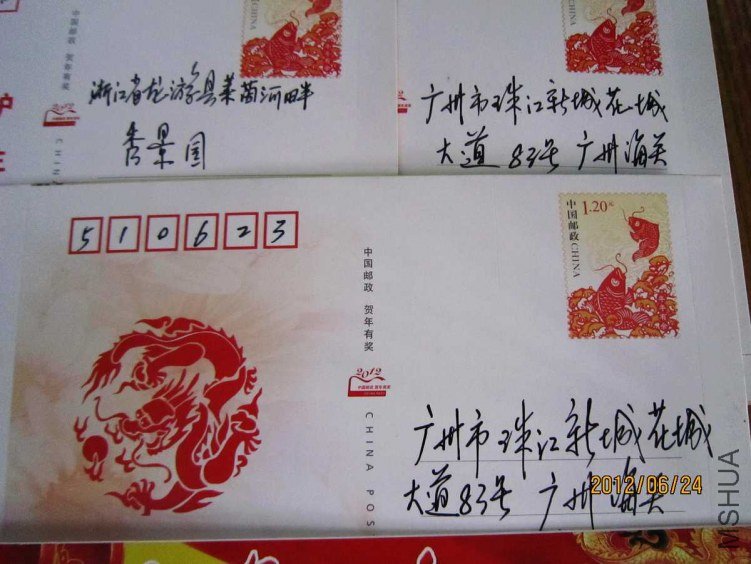 中国邮政 贺年有奖
2012
CHINA
CHINA
浙江省龙游县莱茵河畔
秀景园
中国邮政 CHINA
广州市珠江新城花城
大道83号 广州海关
510623
中国邮政 贺年有奖
2012
中国邮政 贺年有奖
CHINA POS
1.20元
中国邮政 CHINA
广州市珠江新城花城
大道83号 广州海关
2012/06/24
MSHUA